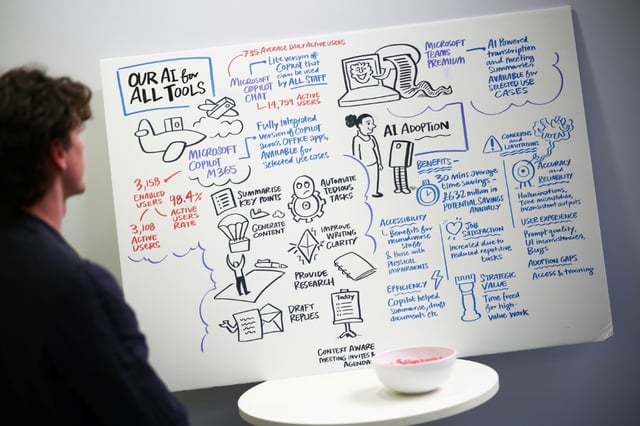 OUR AI for
ALL TOOLS
735 AVERAGE DAILY ACTIVE USERS
MICROSOFT
COPILOT
CHAT
Lite version of
Copilot that
can be used
by ALL STAFF
14,759 ACTIVE
USERS
MICROSOFT
TEAMS
PREMIUM
AI Powered
transcription
and meeting
Summaries
AVAILABLE for
SELECTED USE
CASES
MICROSOFT
COPILOT
M365
Fully integrated
version of Copilot
across OFFICE apps,
AVAILABLE for
selected use cases
3,158
ENABLED
USERS
98.4%
ACTIVE
USERS
RATE
3,108
ACTIVE
USERS
SUMMARISE
KEY POINTS
GENERATE
CONTENT
AUTOMATE
TEDIOUS
TASKS
IMPROVE
WRITING
CLARITY
PROVIDE
RESEARCH
DRAFT
REPLIES
Today
CONTEXT AWARE
MEETING INVITES &
AGENDA
AI ADOPTION
BENEFITS
30 mins average
time savings -
£632 million in
POTENTIAL SAVINGS
ANNUALLY
ACCESSIBILITY
Benefits for
neurodiverse
staff
& those with
PHYSICAL
IMPAIRMENTS
JOB
SATISFACTION
Increased due to
reduced repetitive
tasks
EFFICIENCY
Copilot helped
summarise, draft
documents etc
STRATEGIC
VALUE
Time freed
for high
Value work
CONCERNS
and
LIMITATIONS
ACCURACY
and
RELIABILITY
Hallucinations,
Tone misalignment,
inconsistent outputs
USER EXPERIENCE
Prompt quality,
UI inconsistencies,
Bugs
ADOPTION GAPS
Access & training